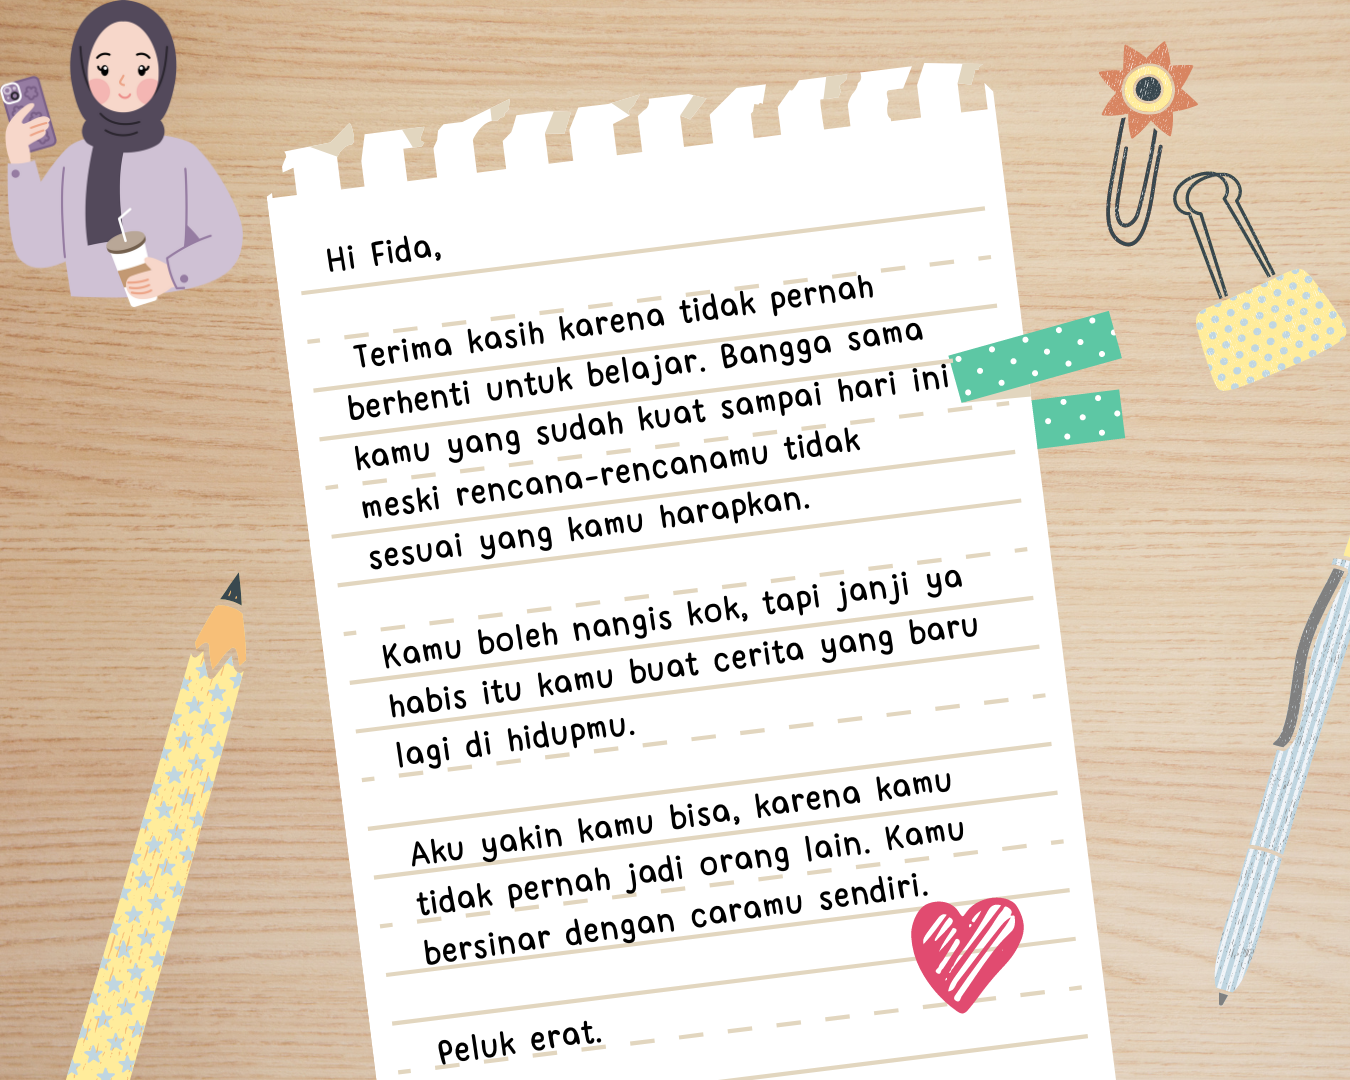 Hi Fida,
Terima kasih karena tidak pernah
berhenti untuk belajar. Bangga sama
kamu yang sudah kuat sampai hari ini
meski rencana-rencanamu tidak
sesuai yang kamu harapkan.
Kamu boleh nangis kok, tapi janji ya
habis itu kamu buat cerita yang baru
lagi di hidupmu.
Aku yakin kamu bisa, karena kamu
tidak pernah jadi orang lain. Kamu
bersinar dengan caramu sendiri.
Peluk erat.